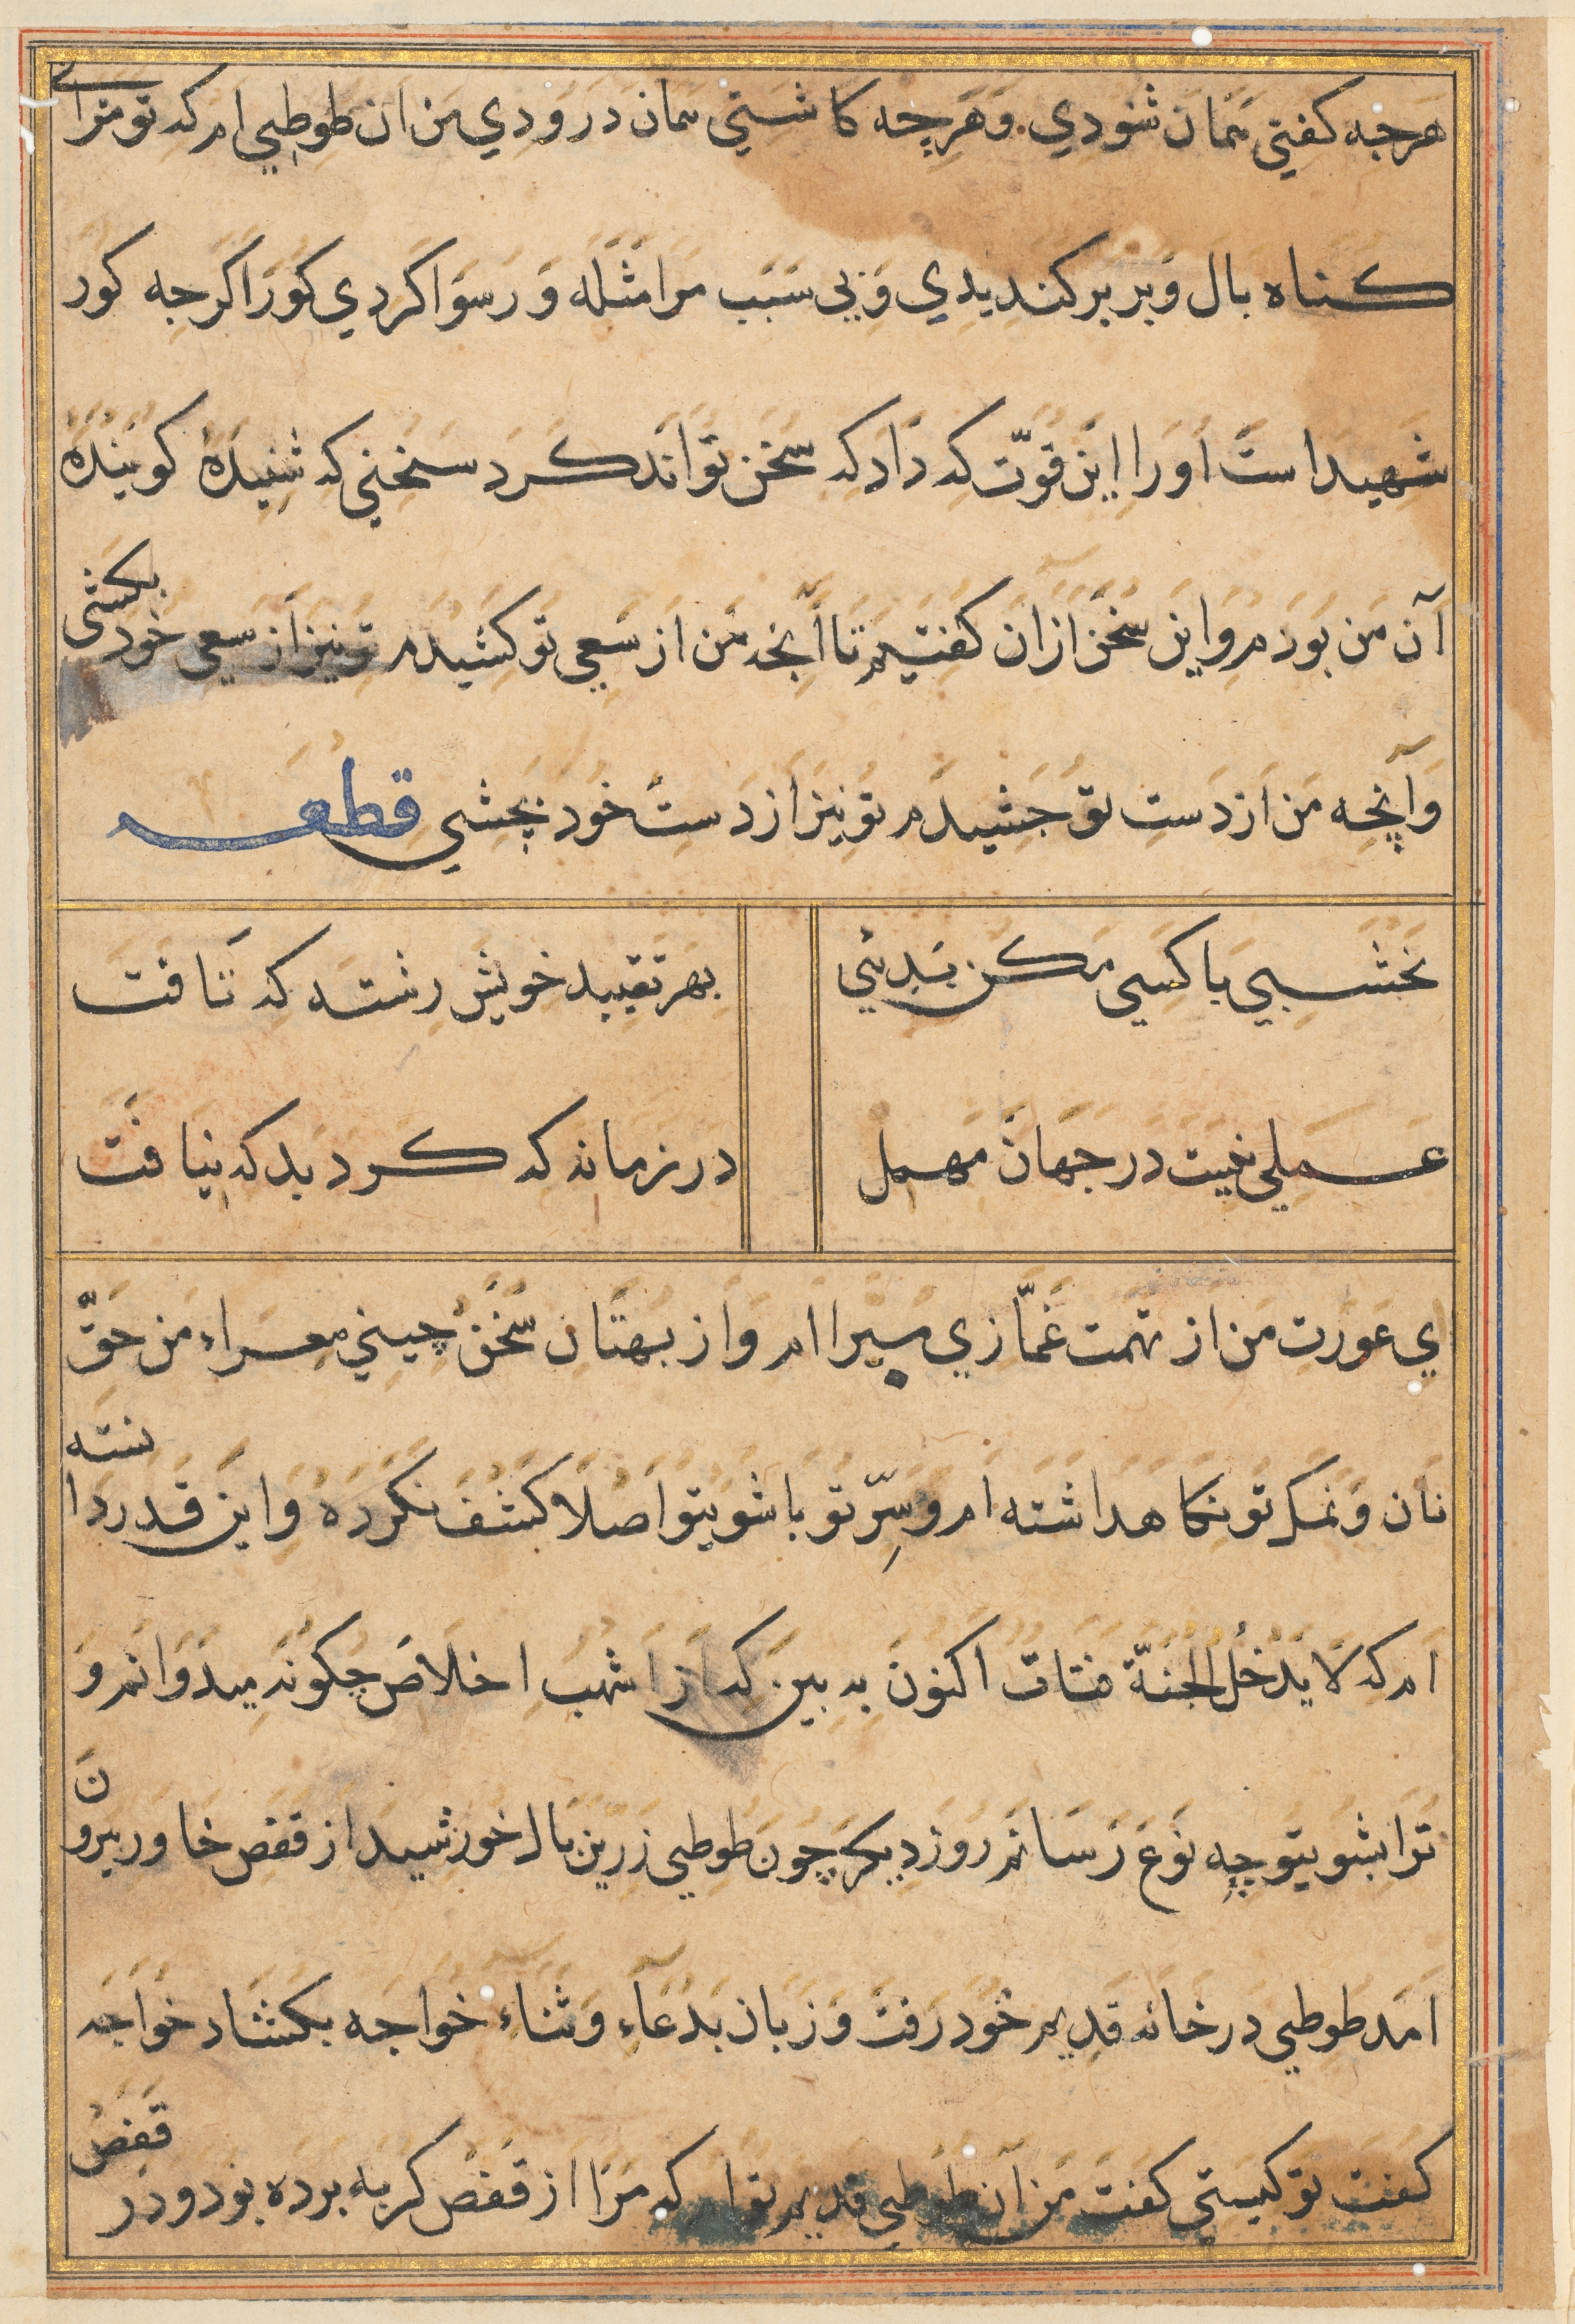 هرجه كفتي همان شنودي. وهرچه كاشتي همان درودي من ان طوطي ام كه تو مرا بے
كناه بال و بر بركنديدي و بي سبب مرا مثله و رسوا كردي كور اكرجه كور
شهيد است اورا اين قوّت كه داد كه سخن تواند كرد سخني كه شنيدهٔ كويندهٔ
آن من بودم و اين سخن ازان كفتيم تا آنجه من از سعي تو كشيدم تو نيز از سعي خود بكشي
وآنچه من از دست تو جشيدم تو نيز از دست خود بچشي قطعه
نخشبي با كسي مكن بدئي
بهر تقييد خويش رشته كه تافت
عملي نيست در جهان مهمل
در زمانه كه كرد بد كه نيافت
اي عورت من از تهمت غمّازي مبرا ام و از بهتان سخن چيني معراء من حقّ
نان و نمك تو نكاه داشته ام و سِرّ تو با شوي تو اصلا كشف نكرده و اين قدر دانسته
ام كه لا يدخل الجنة قتات اكنون به بين كه از اشهب اخلاص چكونه ميدوانم و
ترا بشوي تو چه نوع رسانم روز ديكر چون طوطي زرين بال خورشيد از قفص خاور بيرون
امد طوطي در خانه قديم خود رفت و زبان بدعآء و ثناء خواجه بكشاد خواجه
كفت تو كيستي كفت من آن طوطي قديم تو ام كه مرا از قفص كربه برده بود و در قفص